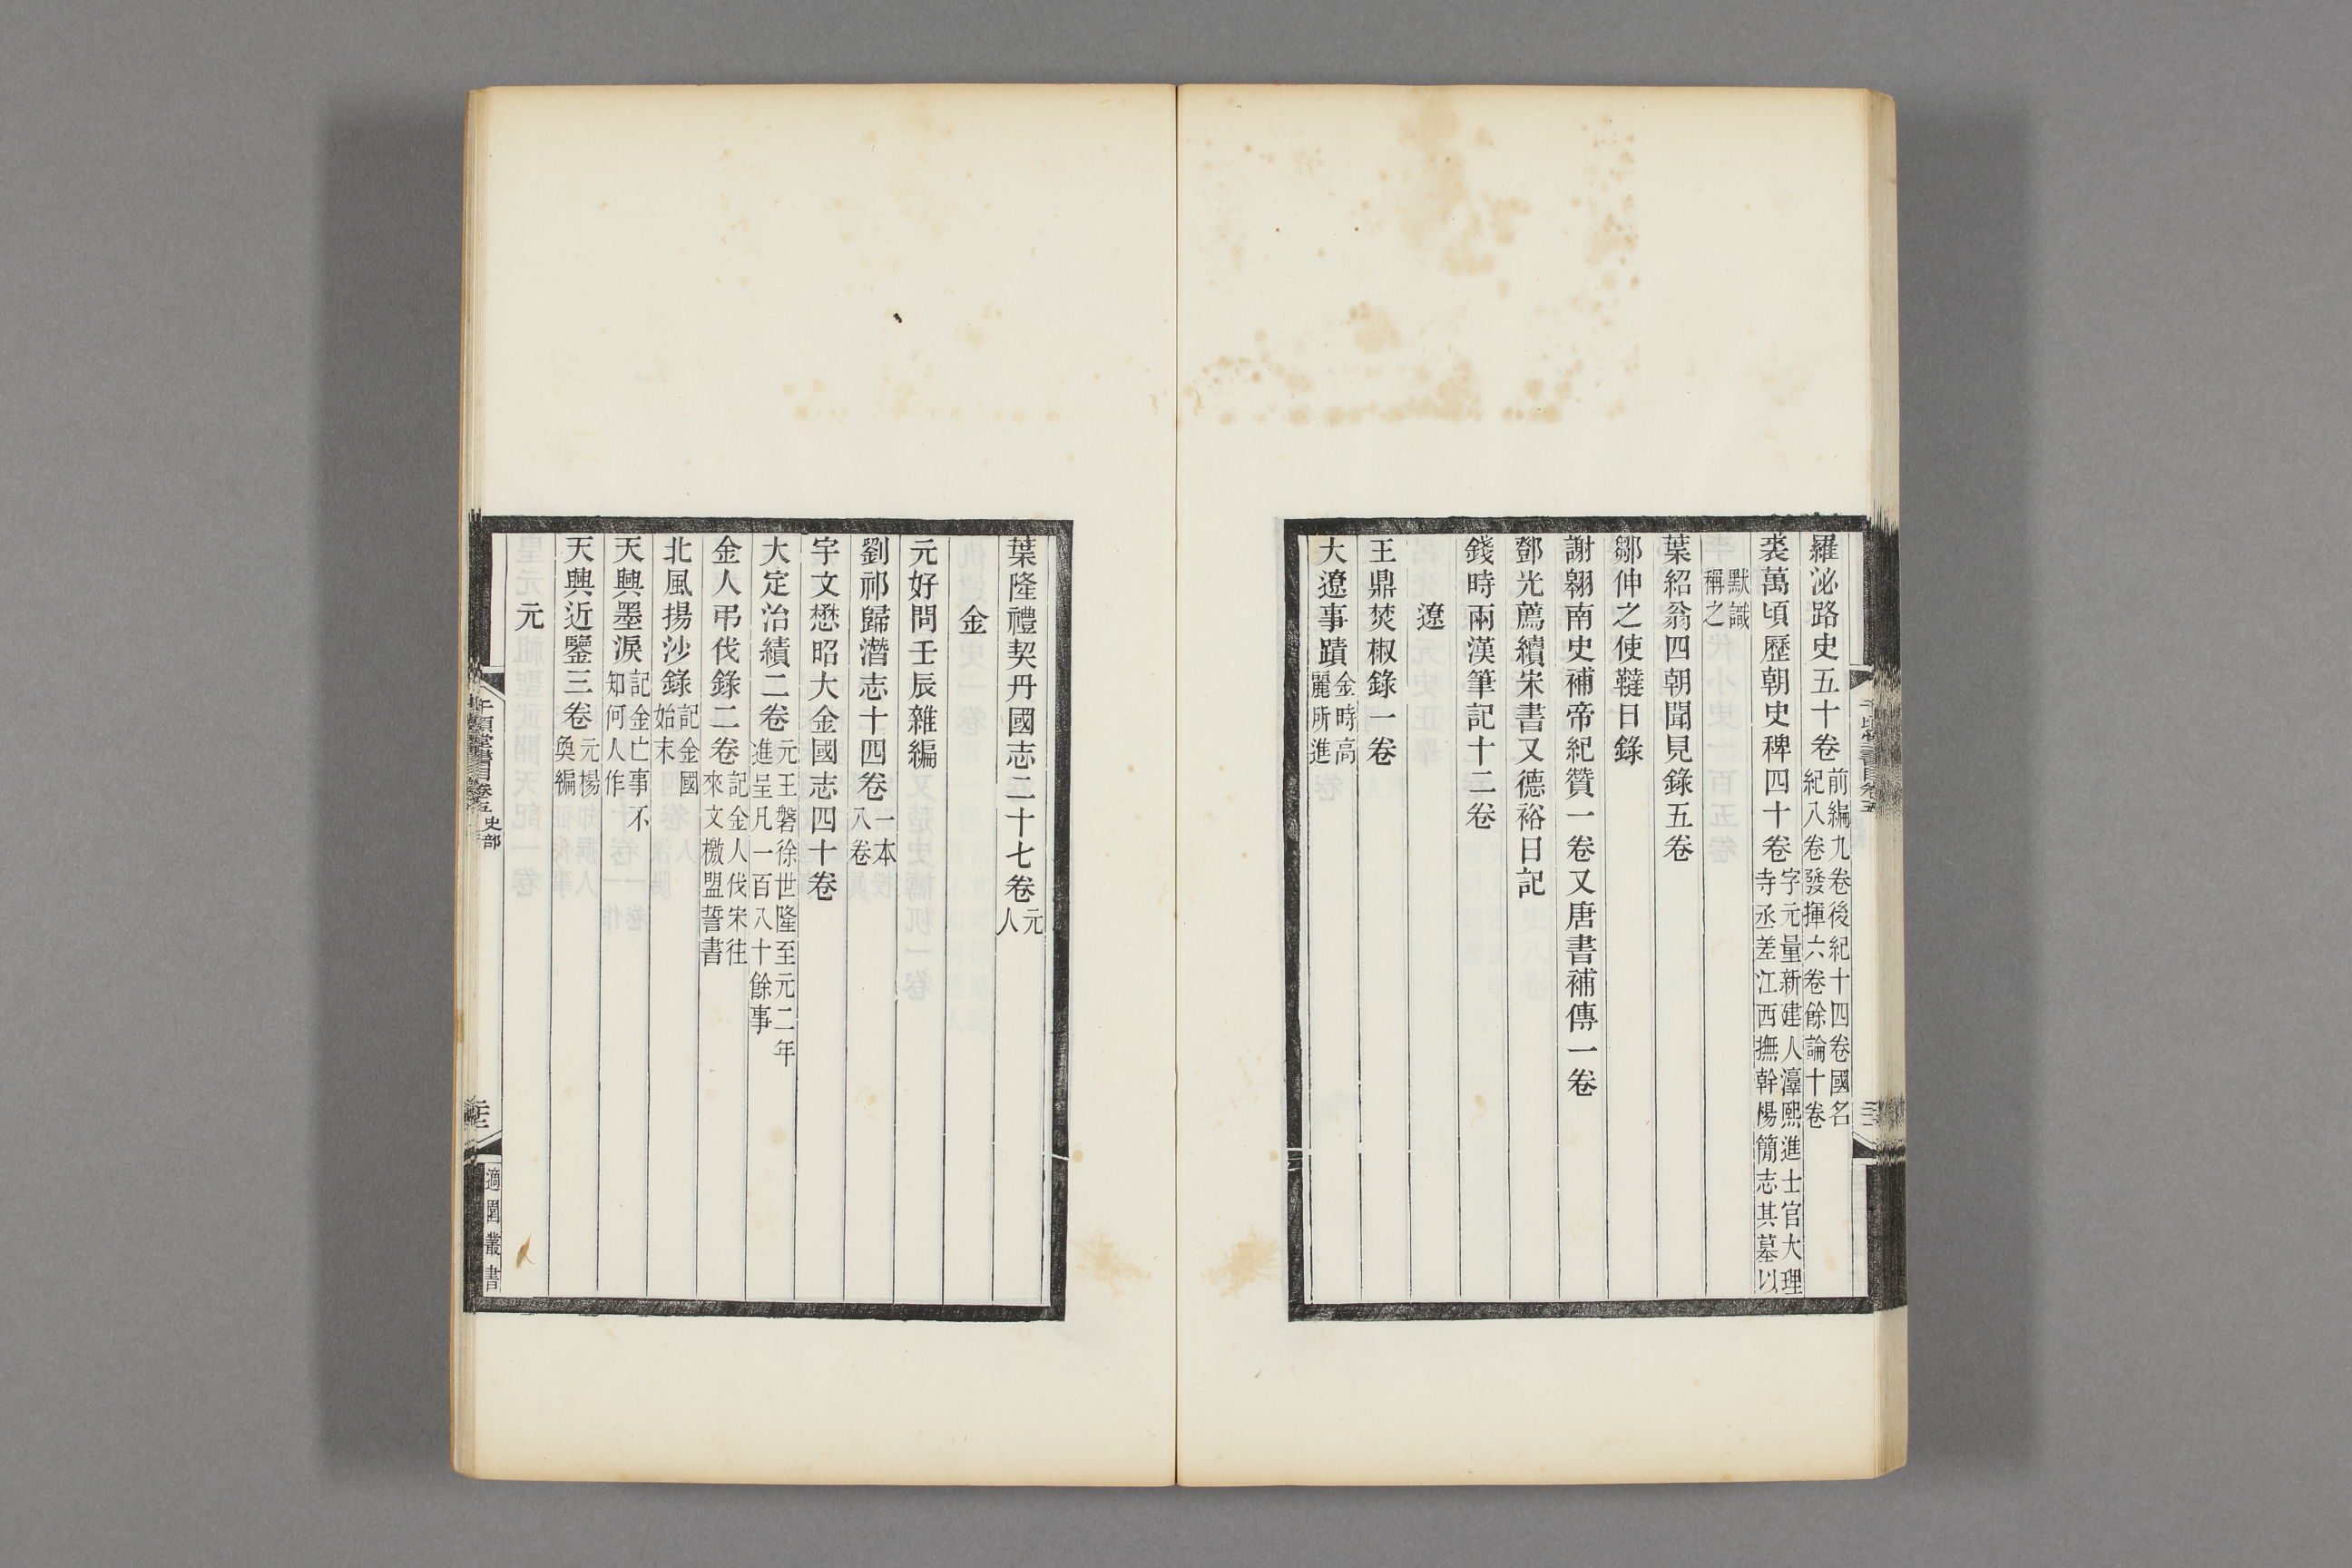 羅泌路史五十卷前編九卷後紀十四卷國名紀八卷發揮六卷餘論十卷
裘萬頃歷朝史稗四十卷字元量新建人濘熙進士官大理寺丞差江西撫幹楊簡志其墓以
默識稱之
葉紹翁四朝聞見錄五卷
鄒伸之使韃日錄
謝翱南史補帝紀贊一卷又唐書補傳一卷
鄧光薦續宋書又德裕日記
錢時兩漢筆記十二卷
遼
王鼎焚椒錄一卷
大遼事蹟金時高麗所進
葉隆禮契丹國志二十七卷元人
金
元好問壬辰雜編
劉祁歸潛志十四卷一本八卷
宇文懋昭大金國志四十卷
大定治績二卷元王磐徐世隆至元二年進呈凡一百八十餘事
金人弔伐錄二卷記金人伐宋往來文檄盟誓書
北風揚沙錄記金國始末
天興墨淚記金亡事不知何人作
天興近鑒三卷元楊奐編
元
千頃堂書目卷五 史部
適園叢書